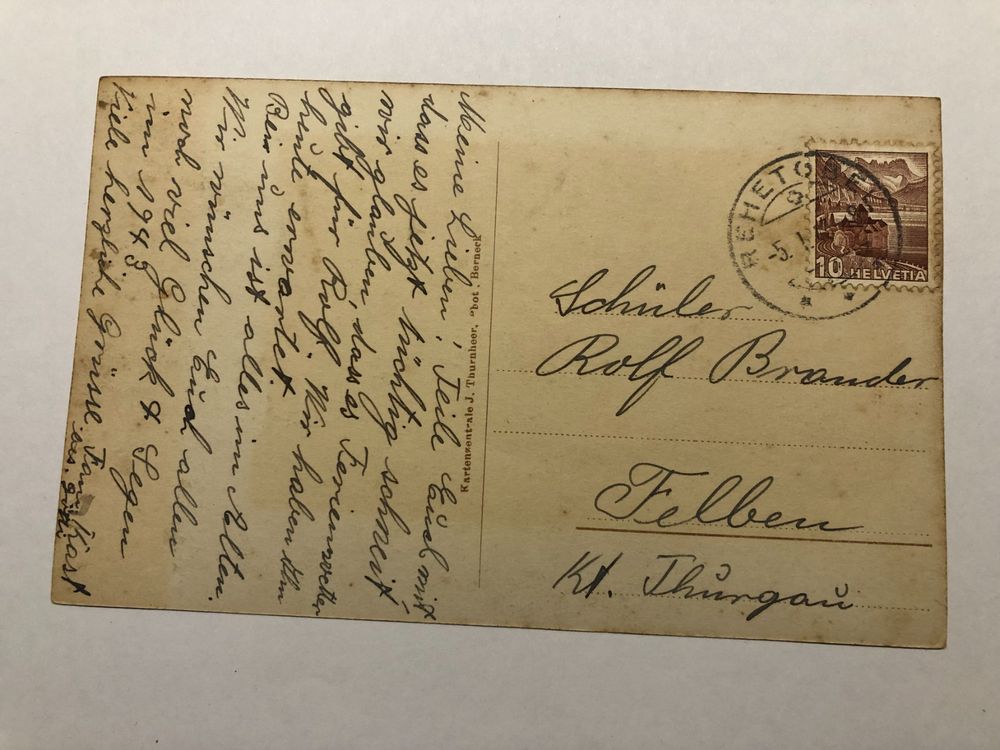 Meine Lieben! Teile Euch mit
dass es jetzt tüchtig schneit
wir glauben, dass es Ferienwetter
gibt für Rolf. Wir haben Ihn
heute erwartet.
Bei uns ist alles im Alten.
Wir wünschen Euch allen
noch viel Glück & Segen
im 1943
Viele herzliche Grüsse Fam. Kast
Kartenzentrale J. Thurnheer, Berneck
REHETOBEL
-5. I.
10 HELVETIA
Schüler
Rolf Brander
Felben
Kt. Thurgau